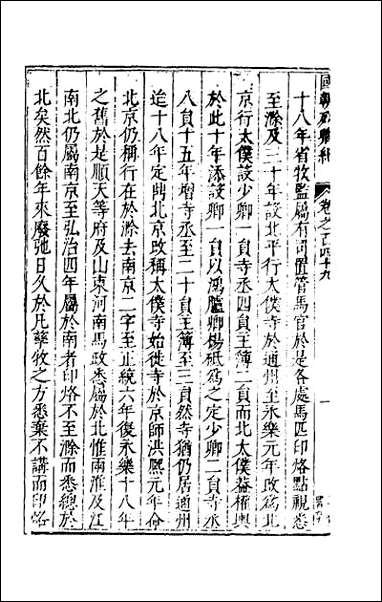 卷之百四十九
十八年省牧監屬有司置管馬官於是各處馬匹印烙點視悉
至滁及三十年設北平行太僕寺於通州至永樂元年改為北
京行太僕設少卿一員寺丞四員主簿二員而北太僕葢權輿
於此十年添設卿一員以鴻臚卿楊砥為之定少卿二員寺丞
八員十五年增寺丞至二十員主簿至三員自然寺猶仍居通州
迨十八年定鼎北京改稱太僕寺始徙寺於京師洪熙元年命
北京仍稱行在於滁去南京二字至正統六年復永樂十八年
之舊於是順天等府及山東河南馬政悉屬於北惟兩淮及江
南北仍屬南京至弘治四年屬於南者印烙不至滁而悉總於
北矣然百餘年來廢弛日久於凡孳牧之方悉棄不講而印烙